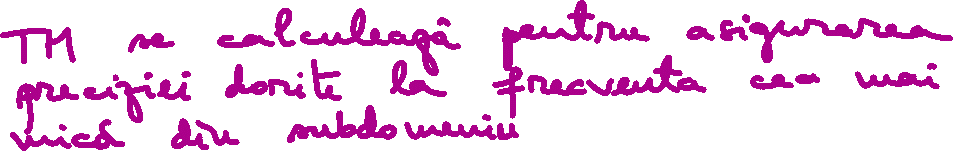 TM se calculează pentru asigurarea
preciziei dorite la frecventa cea mai
mică din subdomeniu